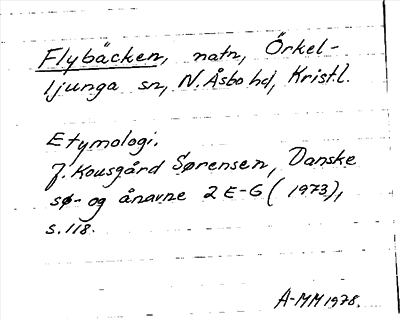 Flybäcken, natn, Örkel-
ljunga sn, N. Åsbo hd, Kristl.
Etymologi.
J. Kousgård Sørensen, Danske
sø- og ånavne 2 E-G (1973),
s. 118.
A-MM 1978.